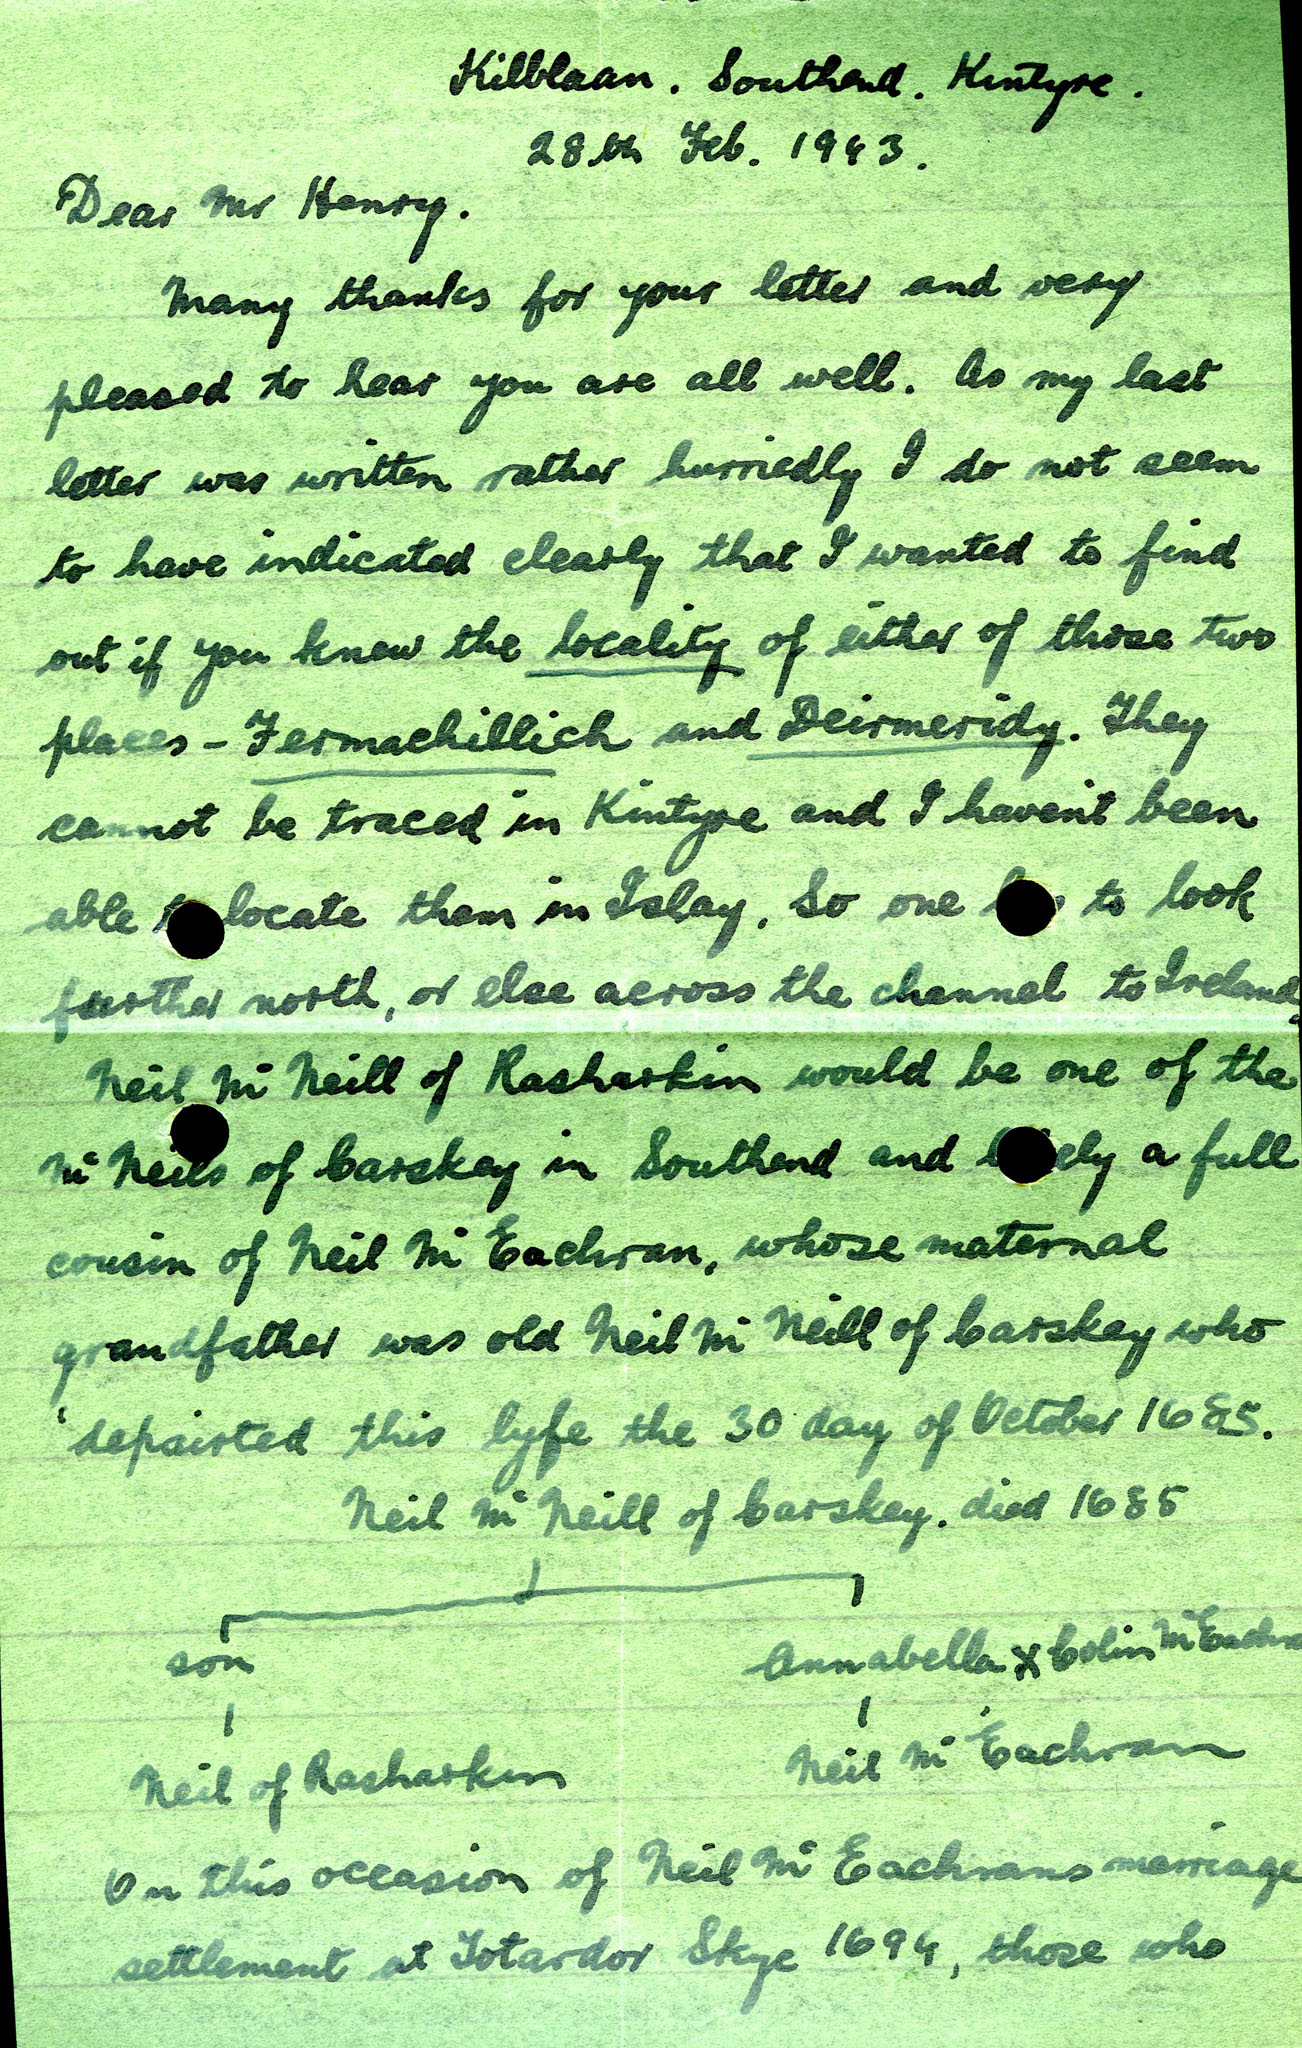 Kilblaan. Southend. Kintyre.
28th Feb. 1943.
Dear Mr Henry.
Many thanks for your letter and very
pleased to hear you are all well. As my last
letter was written rather hurriedly I do not seem
to have indicated clearly that I wanted to find
out if you knew the locality of either of those two
places - Fermachillich and Deirmeridy. They
cannot be traced in Kintyre and I haven't been
able to locate them in Islay. So one to look
further north, or else across the channel to Ireland.
Neil Mc Neill of Rasharkin would be one of the
Mc Neils of Carskey in Southend and likely a full
cousin of Neil Mc Eachran, whose maternal
grandfather was old Neil Mc Neill of Carskey who
'depairted this lyfe the 30 day of October 1685.
Neil Mc Neill of Carskey. died 1685
son
Annabella x Colin Mc Eachra
Neil of Rasharkin
Neil Mc Eachran
On this occasion of Neil Mc Eachrans marriage
settlement at Totardor Skye 1694, those who